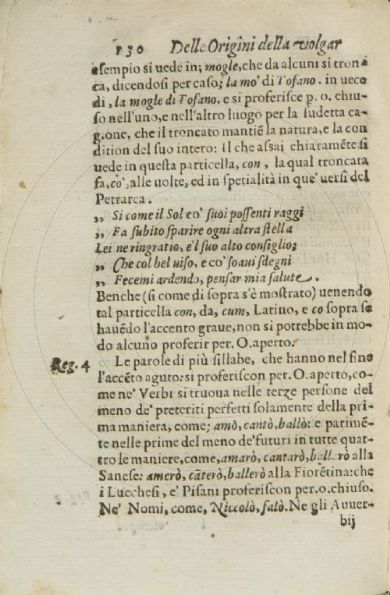 130 Delle Origini della volgar
esempio si vede in; mogle, che da alcuni si tron
ca, dicendosi per caso; la mo' di Tofano. in uece
di, la mogle di Tofano. e si proferisce p. o. chiu-
so nell'uno, e nell'altro luogo per la sudetta ca-
gione, che il troncato mantiẽ la natura, e la con
dition del suo intero: il che assai chiaramẽte si
vede in questa particella, con, la qual troncata
fa, co', alle uolte, ed in spetialità in que' uersi del
Petrarca.
„ Si come il Sol co' suoi possenti raggi
„ Fa subito sparire ogni altra stella
Lei ne ringratio, e'l suo alto consiglio;
„ Che col bel uiso, e co' soaui sdegni
„ Fecemi ardendo, pensar mia salute.
Benche (si come di sopra s'è mostrato) uenendo
tal particella con, da, cum, Latino, e co sopra se
hauẽdo l'accento graue, non si potrebbe in mo-
do alcuno proferir per. O. aperto.
Reg. 4 Le parole di più sillabe, che hanno nel fine
l'accẽto aguto: si proferiscon per. O. aperto, co-
me ne' Verbi si truoua nelle terze persone del
meno de' preteriti perfetti solamente della pri-
ma maniera, come; amò, cantò, ballò: e parimẽ-
te nelle prime del meno de' futuri in tutte quat-
tro le maniere, come, amarò, cantarò, ballarò alla
Sanese: amerò, cãterò, ballerò alla Fiorẽtina: che
i Lucchesi, e' Pisani proferiscon per. o. chiuso.
Ne' Nomi, come, Niccolò, falò. Ne gli Auuer-
bij